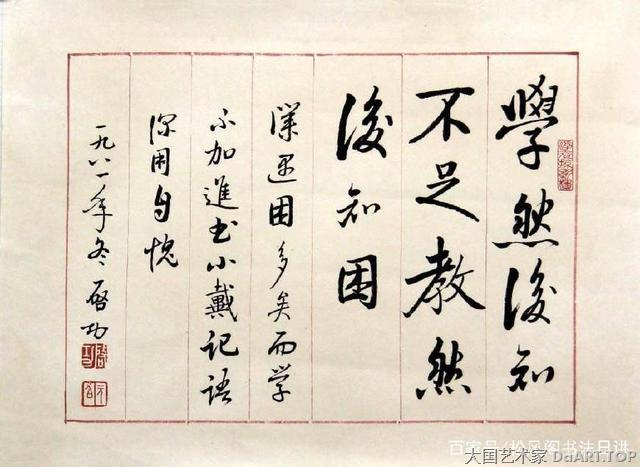 學然後知
不足教然
後知困
僕遇困多矣而学
不加進书小戴记语
深用自愧
一九八一年冬啓功
啓功
元白
百家号/松风阁书法日讲
大国艺术家 DaART.TOP